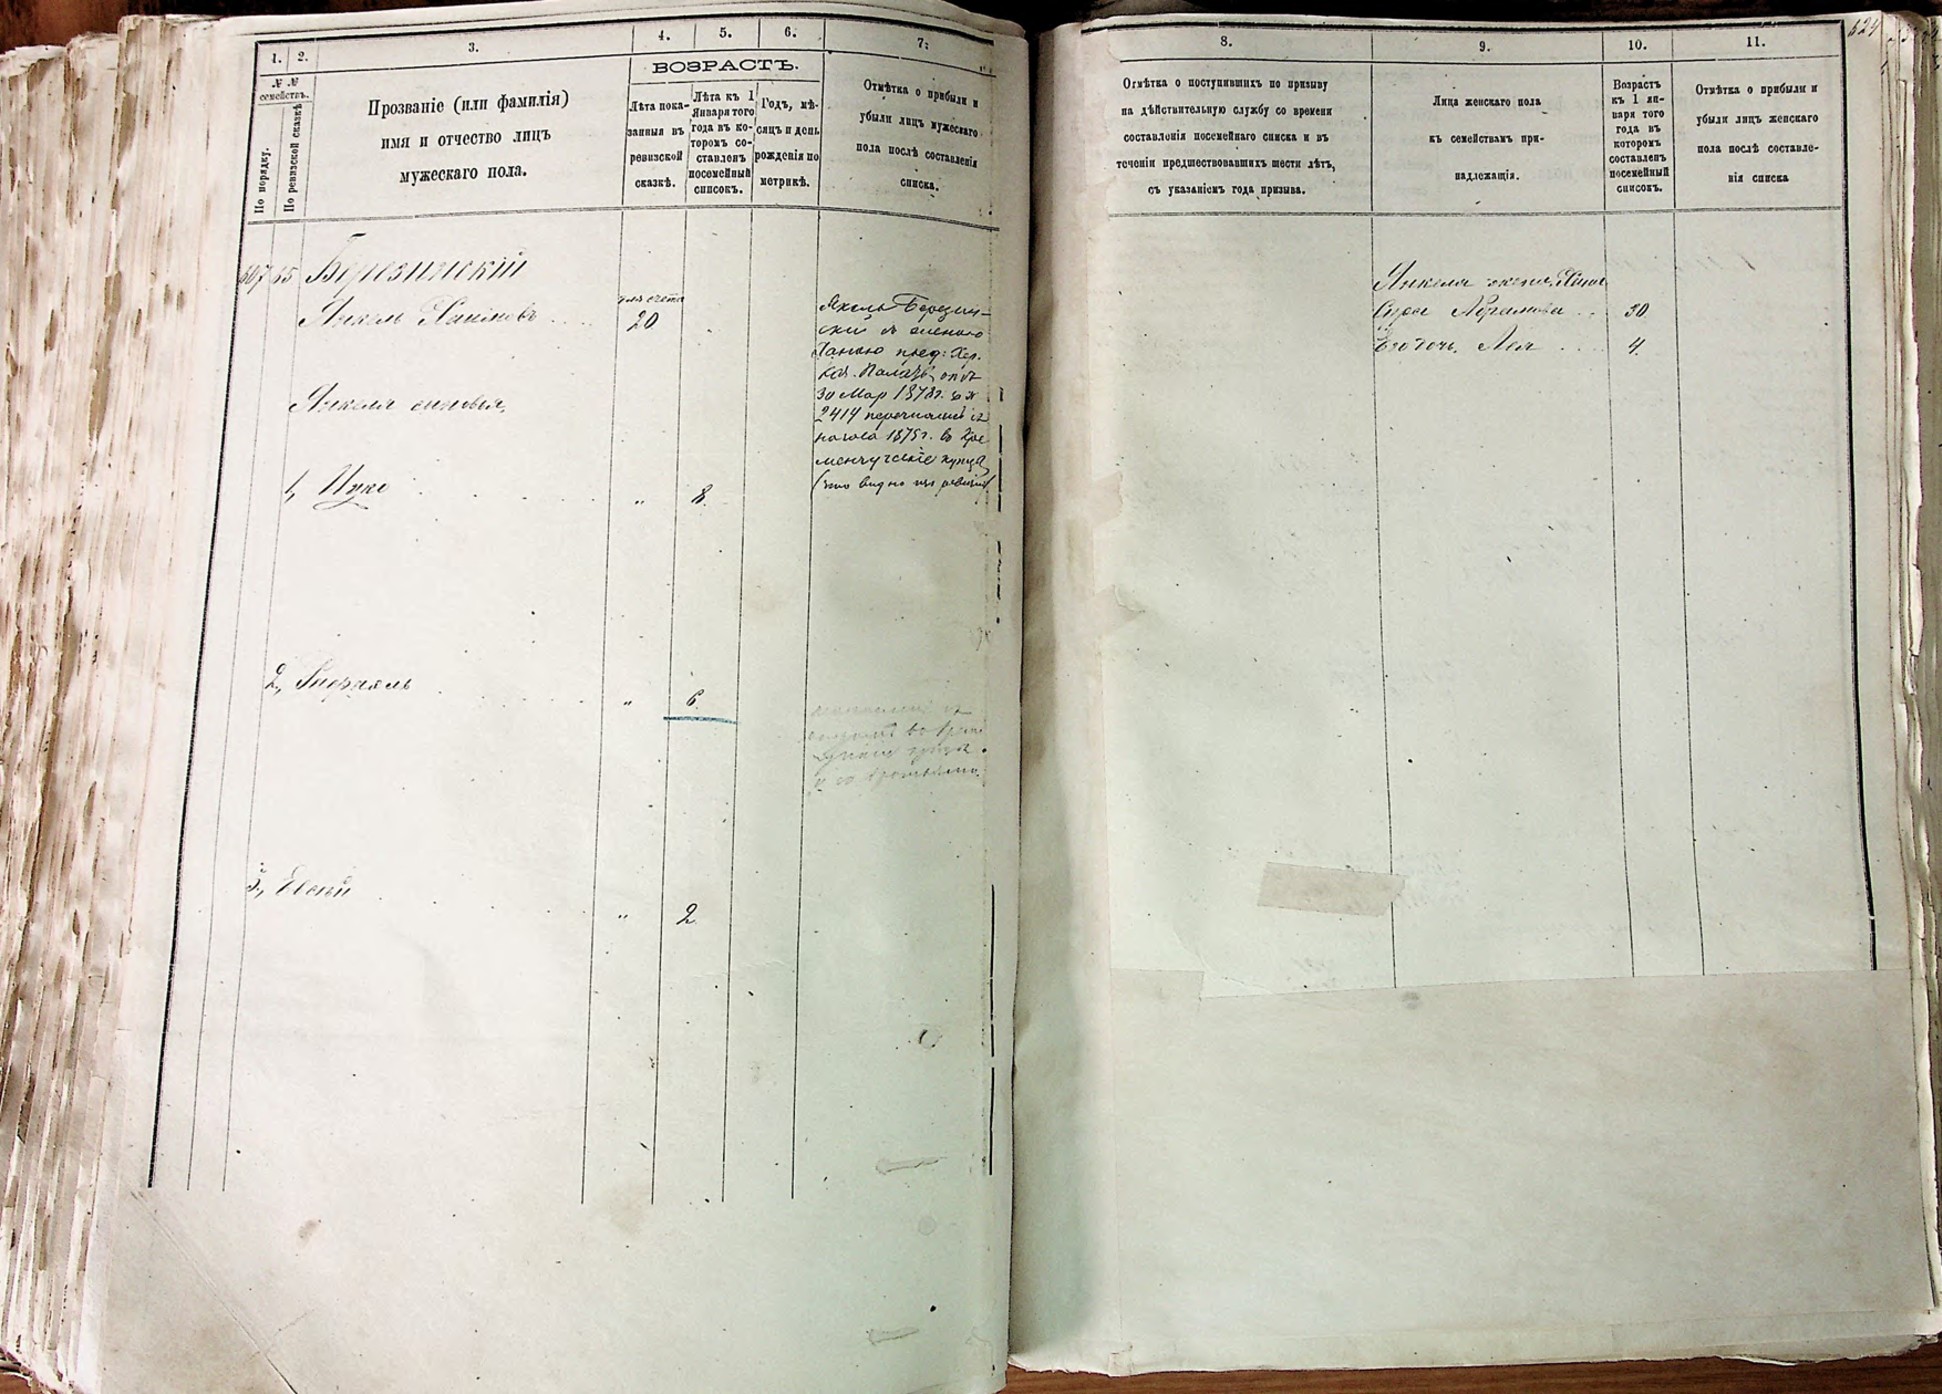 1.
2.
3.
4.
5.
6.
7.
№ №
семействъ.
По порядку.
По ревизской сказкѣ
Прозваніе (или фамилія)
имя и отчество лицъ
мужескаго пола.
ВОЗРАСТЪ.
Лѣта пока-
занныя въ
ревизской
сказкѣ.
Лѣта къ 1
Января того
года въ ко-
торомъ со-
ставленъ
посемейный
списокъ.
Годъ, мѣ-
сяцъ и день
рожденія по
метрикѣ.
Отмѣтка о прибыли и
убыли лицъ мужескаго
пола послѣ составленія
списка.
607 65 Березинскій
Янкель Хаимовъ
20
Янкеля сыновья,
1, Ицко " 8.
2, " 6.
3, Евсей " 2
Березин-
скій
30 Мар 1873г. №
2414 перечисленъ съ
начала 1875г. въ Кре
менчугскіе купцы
8.
9.
10.
11.
624
Отмѣтка о поступившихъ по призыву
на дѣйствительную службу со времени
составленія посемейнаго списка и въ
теченіи предшествовавшихъ шести лѣтъ,
съ указаніемъ года призыва.
Лица женскаго пола
къ семействамъ при-
надлежащія.
Возрастъ
къ 1 ян-
варя того
года въ
которомъ
составленъ
посемейный
списокъ.
Отмѣтка о прибыли и
убыли лицъ женскаго
пола послѣ составле-
нія списка
Янкеля жена
Сура Абрамова 30
Его дочь, Лея 4.